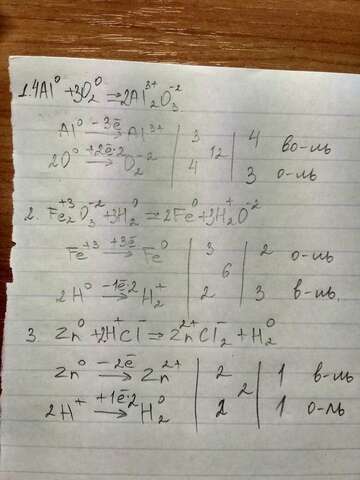 1. 4Al⁰ + 3O₂⁰ ⇒ 2Al₂³⁺O₃⁻²
Al⁰ −3ē→ Al³⁺ | 3 | 12 | 4 во-ль
2O⁰ +2ē·2→ O₂⁻² | 4 | | 3 о-ль
2. Fe₂⁺³O₃⁻² + 3H₂⁰ ⇒ 2Fe⁰ + 3H₂⁺O⁻²
Fe⁺³ +3ē→ Fe⁰ | 3 | 6 | 2 о-ль
2H⁰ −1ē·2→ H₂⁺ | 2 | | 3 в-ль.
3. Zn⁰ + 2H⁺Cl⁻ ⇒ Zn²⁺Cl₂⁻ + H₂⁰
Zn⁰ −2ē→ Zn²⁺ | 2 | 2 | 1 в-ль
2H⁺ +1ē·2→ H₂⁰ | 2 | | 1 о-ль